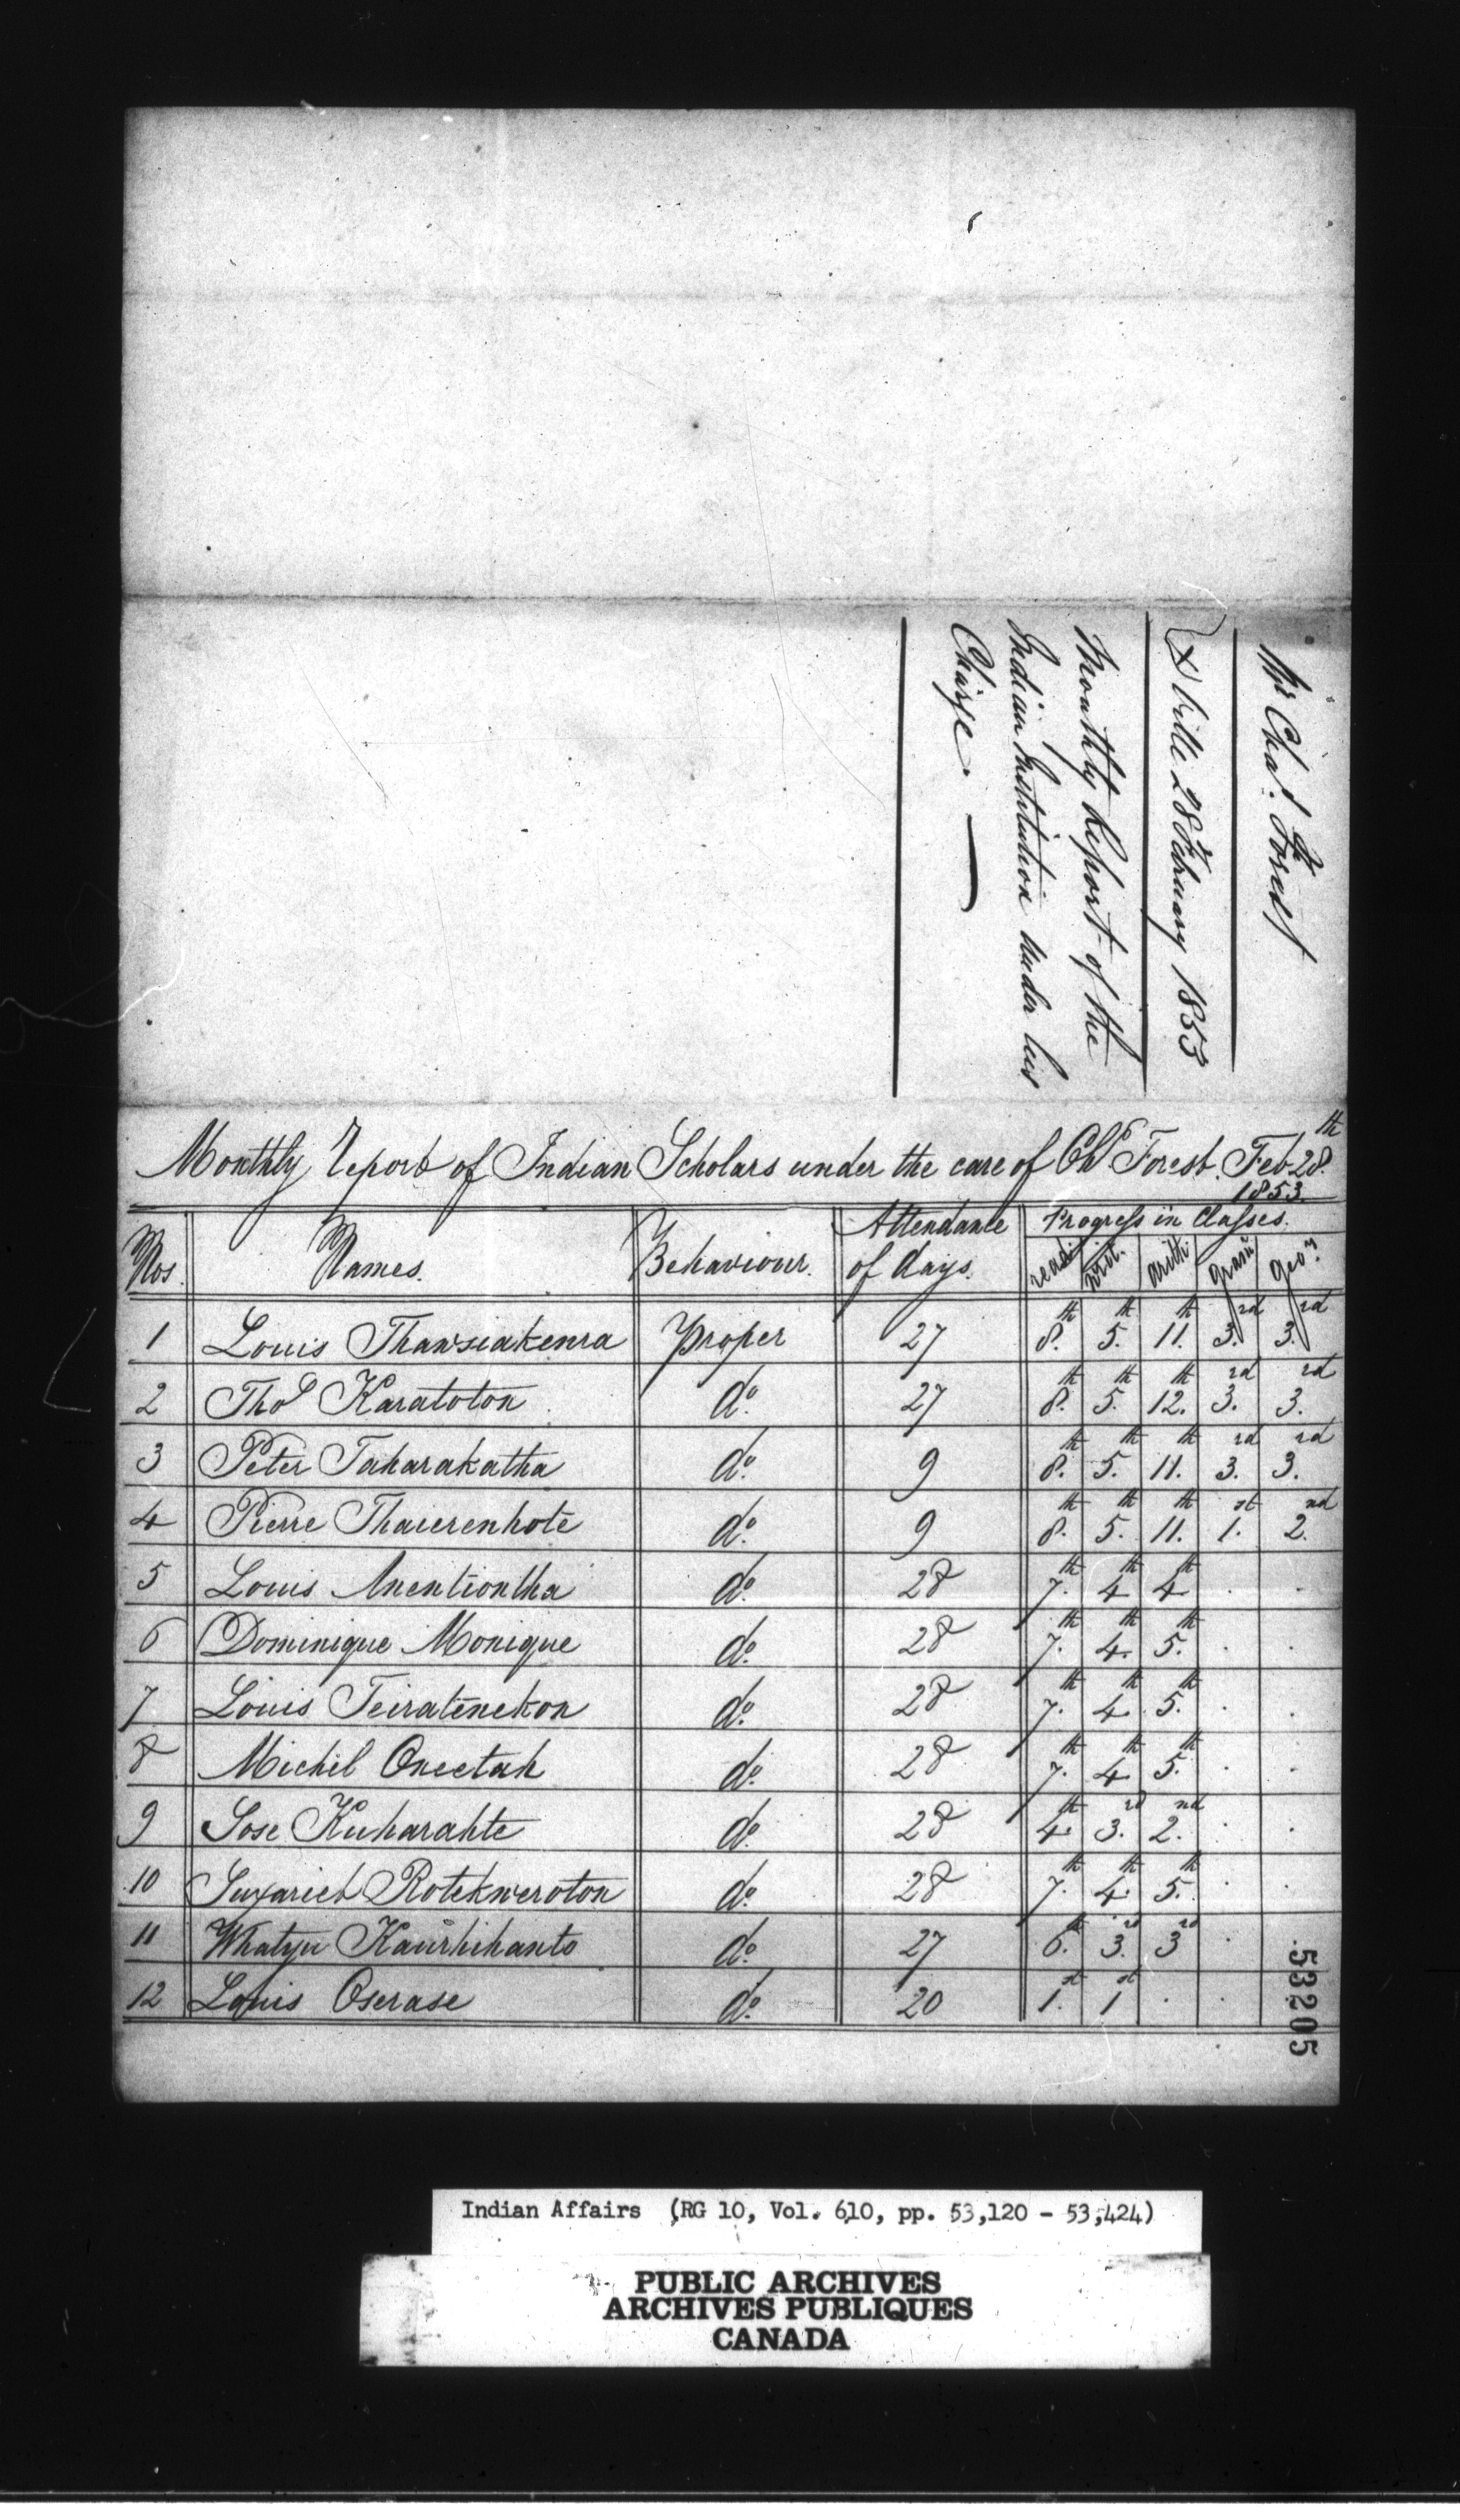 Mr Chas. Forest
D ville 28 February 1853
Monthly Report of the
Indian Institution under his
Charge. —
Monthly Report of Indian Scholars under the care of Chs Forest. Feb 28.th
1853.
Nos. Names. Behaviour. Attendance of days. Progress in Classes.
read. writ. arith. gram geo.
1 Louis Thawsiakenra Proper 27 8.th 5.th 11.th 3.rd 3.rd
2 Thos Karatoton do. 27 8.th 5.th 12.th 3.rd 3.rd
3 Peter Taharakatha do. 9 8.th 5.th 11.th 3.rd 3.rd
4 Pierre Thaierenhote do. 9 8.th 5.th 11.th 1.st 2.nd
5 Louis Anentiontha do. 28 7.th 4th 4th . .
6 Dominique Monique do. 28 7.th 4.th 5.th . .
7 Louis Teiratenekon do. 28 7.th 4.th 5.th . .
8 Michel Oneetah do. 28 7.th 4th 5.th . .
9 Sose Kuharahte do. 28 4.th 3.rd 2.nd . .
10 Rotekweroton do. 28 7.th 4.th 5.th . .
11 Whatyu do. 27 6.th 3.rd 3rd .
12 Louis Oserase do. 20 1.st 1st . .
53205
Indian Affairs (RG 10, Vol. 610, pp. 53,120 - 53,424)
PUBLIC ARCHIVES
ARCHIVES PUBLIQUES
CANADA